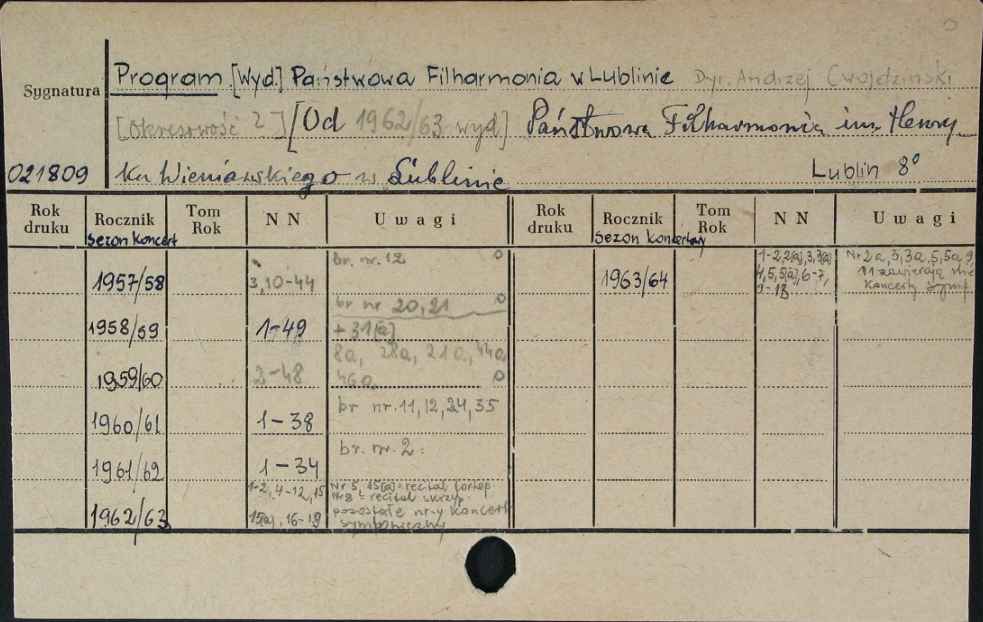 Program [Wyd.] Państwowa Filharmonia w Lublinie Dyr. Andrzej Cwojdziński
Sygnatura
[Okresowość ?] [Od 1962/63 wyd] Państwowa Filharmonia im. Henry-
021809 ka Wieniawskiego w Lublinie Lublin 8°
Rok druku Rocznik Tom Rok N N Uwagi Rok druku Rocznik Tom Rok N N Uwagi
Sezon koncert Sezon koncertowy
1957/58 3,10-44 br. nr. 12 1963/64 1-2,2(a),3,3(a) Nr 2a,3,3a,5,5a,9
4,5,5(a),6-7, 11 zawierają
koncerty symf
br nr 20,21
1958/59 1-49 + 31(a)
8a, 28a, 21a, 44a
1959/60 2-48 46a
1960/61 1-38 br nr. 11,12,24,35
1961/62 1-34 br. nr. 2.
1962/63 1-2, 4-12, 15 Nr 5, 15(a) - recital fortep
15(a), 16-19 Nr 8 - recital skrzyp.
pozostałe nr-y koncert
symfoniczny